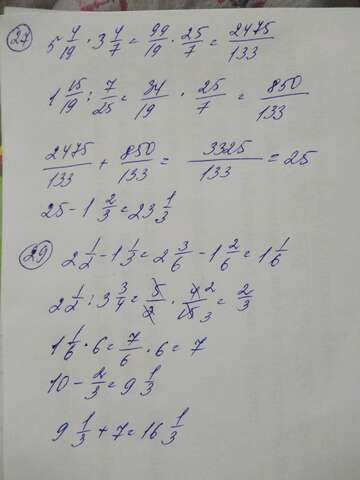 27) 5 4/19 · 3 4/7 = 99/19 · 25/7 = 2475/133
1 15/19 : 7/25 = 34/19 · 25/7 = 850/133
2475/133 + 850/133 = 3325/133 = 25
25 - 1 2/3 = 23 1/3
29) 2 1/2 - 1 1/3 = 2 3/6 - 1 2/6 = 1 1/6
2 1/2 : 3 3/4 = 5/2 · 4 2/15 3 = 2/3
1 1/6 · 6 = 7/6 · 6 = 7
10 - 2/3 = 9 1/3
9 1/3 + 7 = 16 1/3